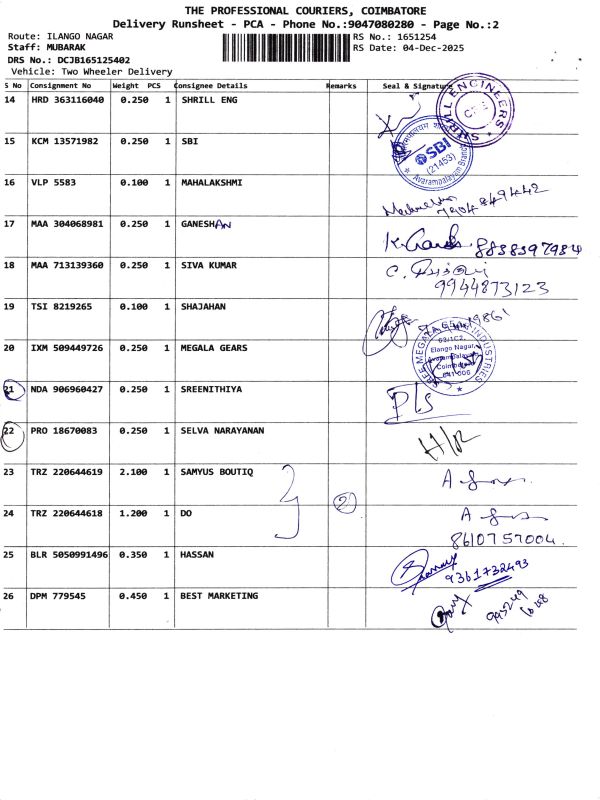 THE PROFESSIONAL COURIERS, COIMBATORE
Delivery Runsheet - PCA - Phone No.:9047080280 - Page No.:2
Route: ILANGO NAGAR RS No.: 1651254
Staff: MUBARAK RS Date: 04-Dec-2025
DRS No.: DCJB165125402
Vehicle: Two Wheeler Delivery
S No Consignment No Weight PCS Consignee Details Remarks Seal & Signature
14 HRD 363116040 0.250 1 SHRILL ENG SHRILL ENGINEERS CBE
15 KCM 13571982 0.250 1 SBI SBI (21453) Avarampalayam Branch
16 VLP 5583 0.100 1 MAHALAKSHMI 7904849442
17 MAA 304068981 0.250 1 GANESHAN 8838397984
18 MAA 713139360 0.250 1 SIVA KUMAR 9944873123
19 TSI 8219265 0.100 1 SHAJAHAN
20 IXM 509449726 0.250 1 MEGALA GEARS 63/1C2, Elango Nagar, Avarampalayam, Coimbatore 641 006
21 NDA 906960427 0.250 1 SREENITHIYA D/S
22 PRO 18670083 0.250 1 SELVA NARAYANAN H/R
23 TRZ 220644619 2.100 1 SAMYUS BOUTIQ
24 TRZ 220644618 1.200 1 DO 2 8610757004
25 BLR 5050991496 0.350 1 HASSAN 9361732493
26 DPM 779545 0.450 1 BEST MARKETING